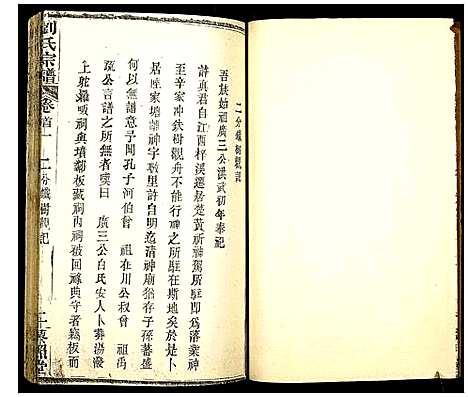 二分鐵樹觀記
吾族始祖廣三公洪武初年奉祀
許真君自江西梓溪遷居楚黃祈神駕所駐即為落業神
至辛家冲鉄樹觀舟不能行神之所駐在斯地矣於是卜
居陸家塘離神字敎里許自明迄清神廟猶存子孫蕃盛
何以無譜意子聞孔子河伯曾 祖在川公叔曾 祖禹
疏公言譜之所無者 曰 廣三公白氏安人卜葬湯潑
上鴕雞 祠與墳 板藏祠內祠被回祿典守者竊板而
劉氏宗譜
卷首一
二分鐵樹觀記
二
藜照堂